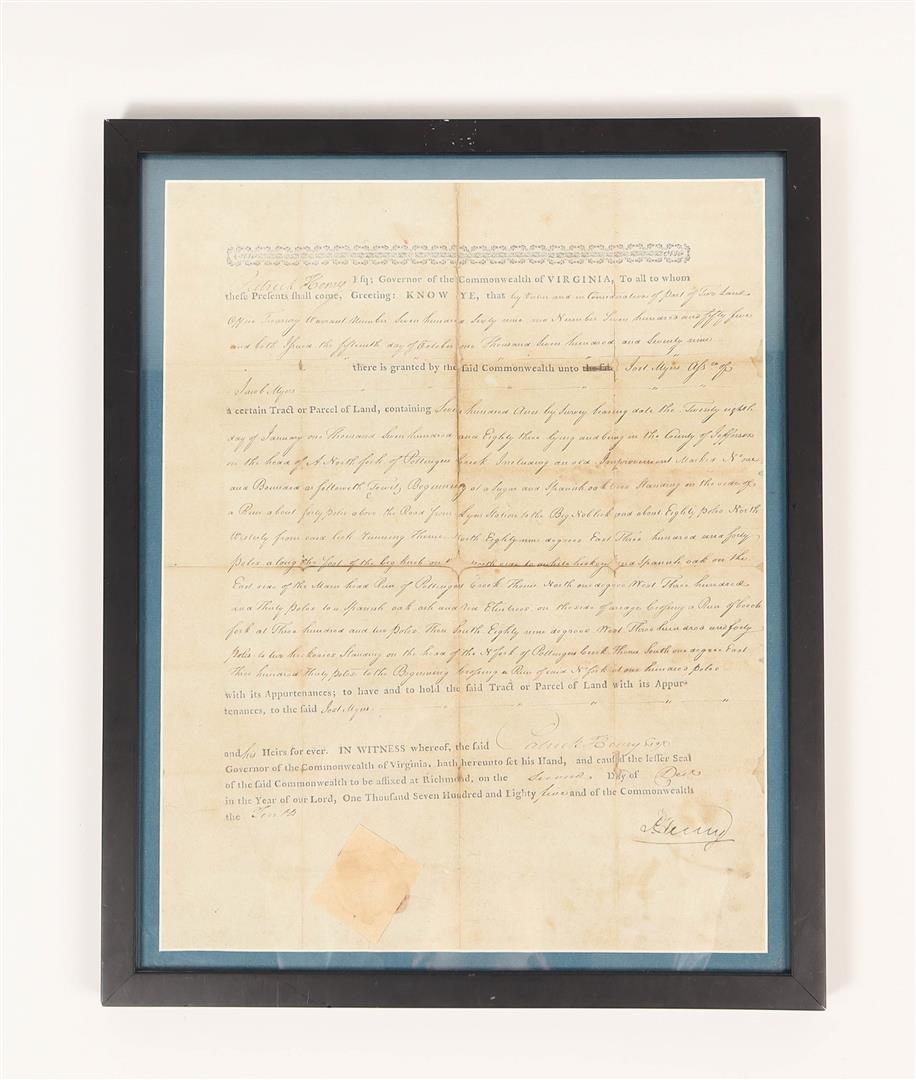 Patrick Henry Esq; Governor of the Commonwealth of VIRGINIA, To all to whom
these Presents shall come, Greeting: KNOW YE, that by virtue and in Consideration of part of Two Land
Office Treasury Warrants Number Seven hundred Sixty nine Number Seven hundred and fifty five
and both Issued the fifteenth day of October one Thousand Seven hundred and Seventy nine
there is granted by the said Commonwealth unto the said Joel Myers Assee of
Jacob Myers
a certain Tract or Parcel of Land, containing Seven hundred Acres by Survey bearing date the Twenty eighth
day of January one Thousand Seven hundred and Eighty three lying and being in the County of Jefferson
on the head of A North fork of Pottingers Creek Including an old Improvement Marked No one
and Bounded as followeth Towit, Beginning at a Sugar and Spanish oak tree Standing on the side of
a Run about forty poles above the Road from Lyns Station to the Big Nob lick and about Eighty poles North
Westerly from said lick running Thence North Eighty nine degrees East Three hundred and forty
poles along the foot of the big knob on the north side to white hickory and Spanish oak on the
East side of the Main head Run of Pottingers Creek Thence North one degree West Three hundred
and Thirty poles to a Spanish oak ash and red Elm trees on the side of a Crossing a Run of beech
fork at Three hundred and two poles Then South Eighty nine degrees West Three hundred and forty
poles to two hickories Standing on the head of the No fork of Pottingers Creek Thence South one degree East
Three hundred Thirty poles to the Beginning Crossing a Run of said No fork at one hundred poles
with its Appurtenances; to have and to hold the said Tract or Parcel of Land with its Appur-
tenances, to the said Joel Myers
and his Heirs for ever. IN WITNESS whereof, the said Patrick Henry Esqr
Governor of the Commonwealth of Virginia, hath hereunto set his Hand, and caused the lesser Seal
of the said Commonwealth to be affixed at Richmond, on the Second Day of Decr
in the Year of our Lord, One Thousand Seven Hundred and Eighty five and of the Commonwealth
the Tenth
P. Henry